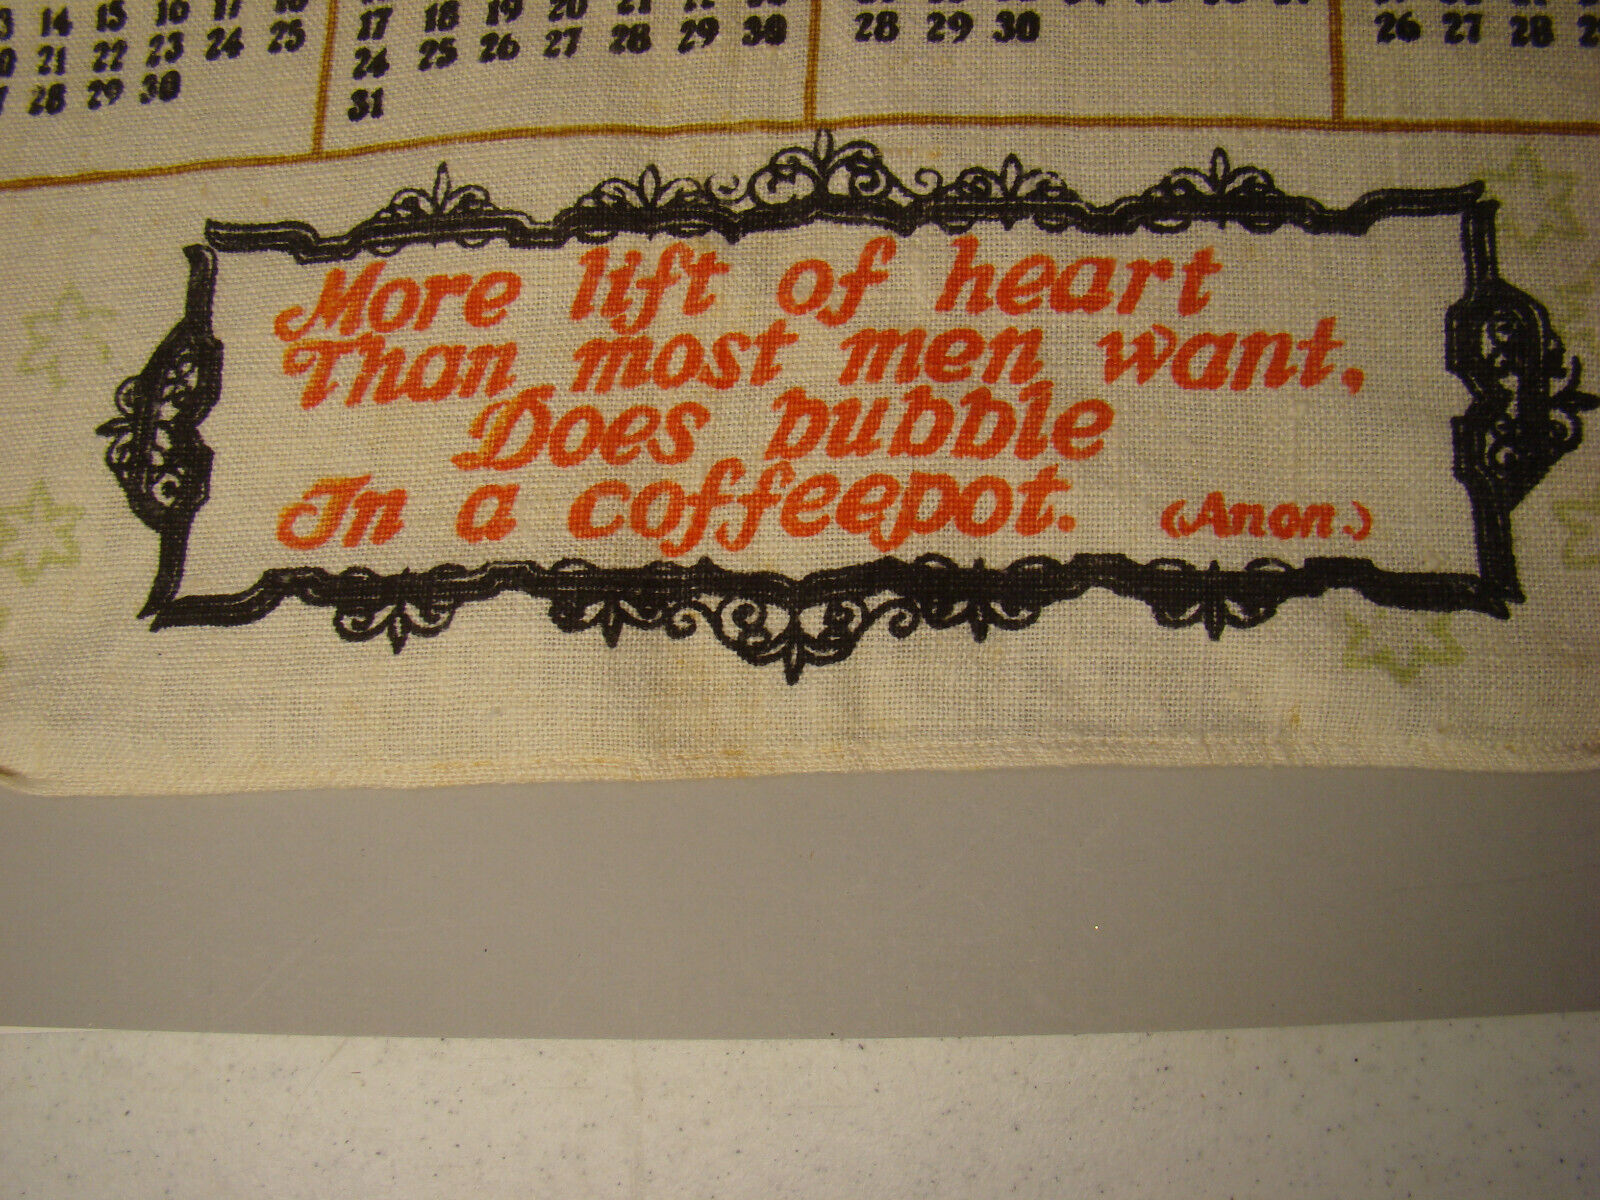 14 15 16 17 18
21 22 23 24 25
28 29 30
17 18 19 20 21
24 25 26 27 28 29 30
31
28 29 30
26 27 28
More lift of heart
Than most men want,
Does bubble
In a coffeepot. (Anon.)